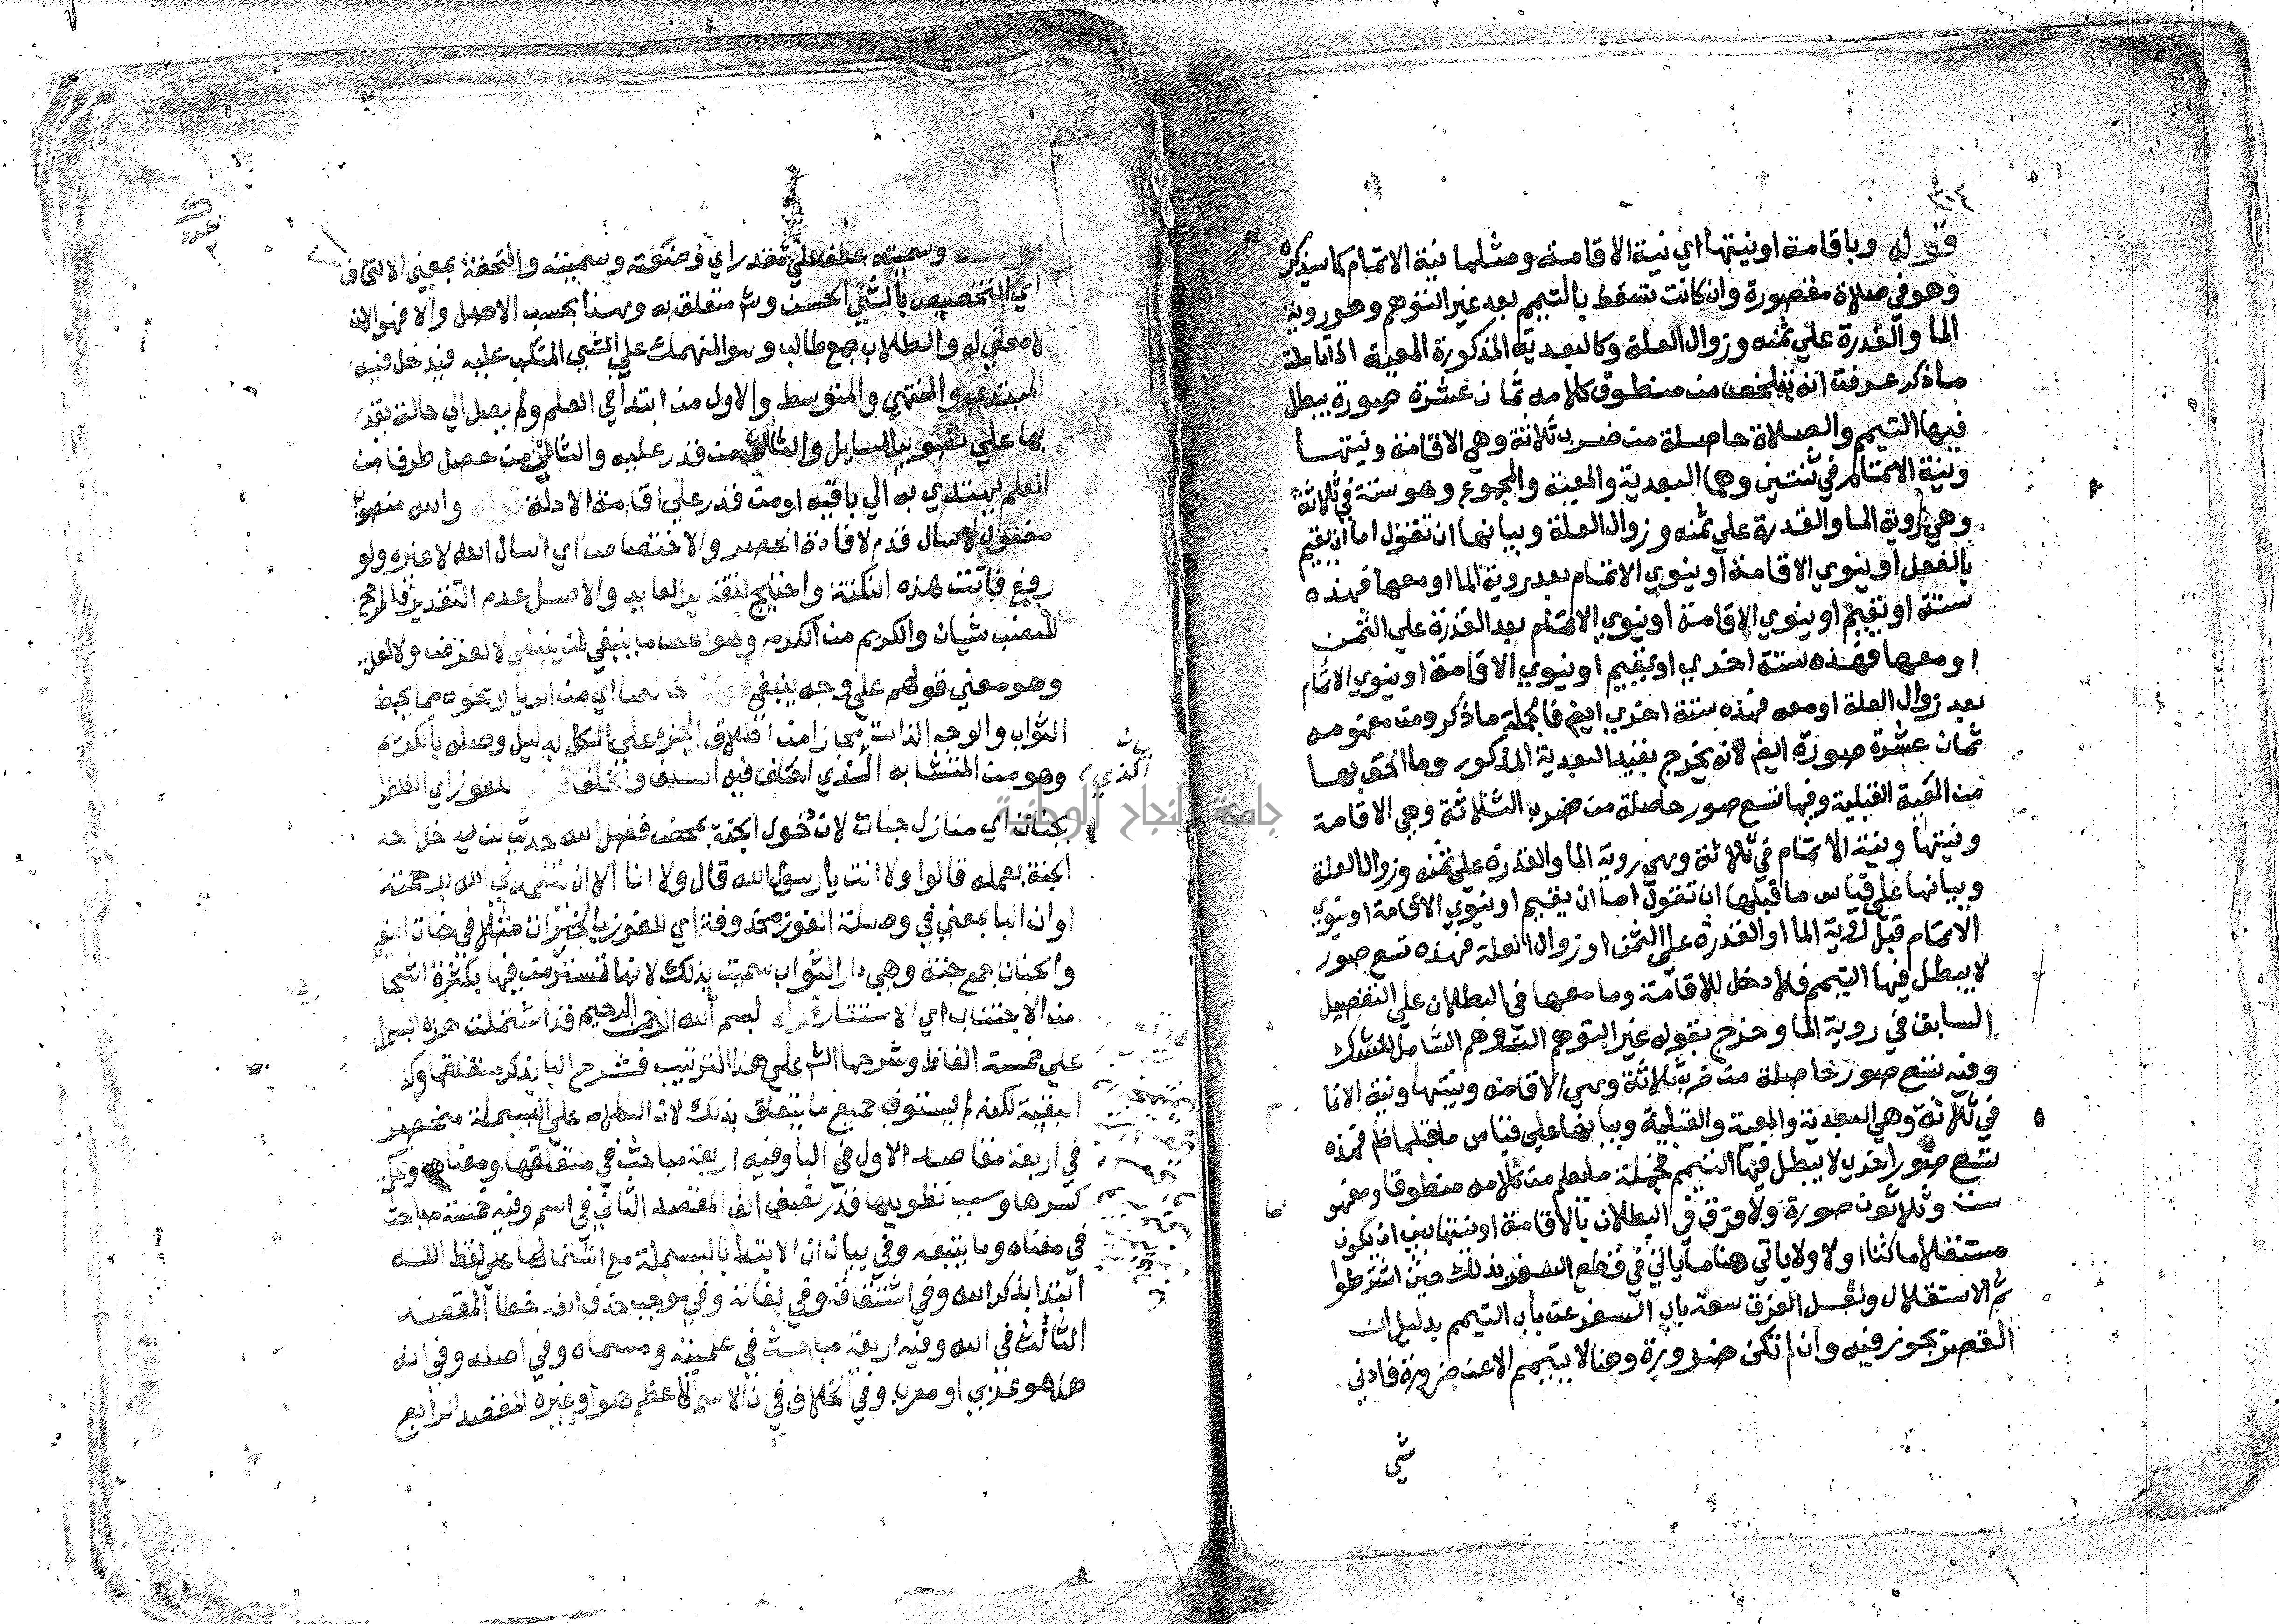 قوله وباقامة او نيتها اي نية الاقامة ومثلها نية الاتمام كما سيذكره
وهو في صلاة مقصورة وان كانت تسقط بالتيمم بعد غير التوهم وهو روية
الما والقدرة علي ثمنه وزوال العلة وكالبعدية المذكورة المعية اذا تاملت
ما ذكر عرفت انه يتلخص من منطوق كلامه ثمان عشرة صورة يبطل
فيها التيمم والصلاة حاصلة من ضرب ثلاثة وهي الاقامة ونيتها
ونية الاتمام في ثنتين وهما البعدية والمعية والمجموع وهو ستة في ثلاثة
وهي روية الما والقدرة علي ثمنه وزوال العلة وبيانها ان تقول اما ان يقيم
بالفعل او ينوي الاقامة او ينوي الاتمام بعد روية الما او معها فهذه
ستة او يقيم او ينوي الاقامة او ينوي الاتمام بعد القدرة علي الثمن
او معها فهذه ستة اخري او يقيم او ينوي الاقامة او ينوي الاتمام
بعد زوال العلة او معه فهذه ستة اخري ايضا فالجملة ما ذكر ومن مفهومه
ثمان عشرة صورة ايضا لانه يخرج بقيد البعدية المذكور وما الحق بها
من المعية القبلية وفيها تسع صور حاصلة من ضرب الثلاثة وهي الاقامة
ونيتها ونية الاتمام في ثلاثة وهي روية الما والقدرة علي ثمنه وزوال العلة
وبيانها علي قياس ما قبلها ان تقول اما ان يقيم او ينوي الاقامة او ينوي
الاتمام قبل روية الما او القدرة علي الثمن او زوال العلة فهذه تسع صور
لا يبطل فيها التيمم فلا دخل للاقامة وما معها في البطلان علي التفصيل
السابق في روية الما وخرج بقوله غير التوهم التوهم الشامل للشك
وفيه تسع صور حاصلة من ضرب ثلاثة وهي الاقامة ونيتها ونية الاتما
في ثلاثة وهي البعدية والمعية والقبلية وبيانها علي قياس ما قبلها فهذه
تسع صور اخري لا يبطل فيها التيمم فجملة ما يعلم من كلامه منطوقا ومفهو
ست وثلاثون صورة ولا فرق في البطلان بالاقامة او نيتها بين ان يكون
مستقلا ماكثا او لا ولا ياتي هنا ما ياتي في قطع السفر بذلك حيث اشترطوا
ثم الاستقلال ولعل الفرق سعة باب السفر عن باب التيمم بدليل ان
القصر يجوز فيه وان لم تكن ضرورة وهنا لا يتيمم الا عن ضرورة فادني
شي
وسميته عطف علي مقدر اي وضعته وسميته والتحفة بمعني الاتحاف
اي التخصيص بالشي الحسن و متعلق به وهذا بحسب الاصل والا فهو الان
لا معني له والطلاب جمع طالب وهو المنهمك علي الشي المتكلب عليه فيدخل فيه
المبتدي والمنتهي والمتوسط والاول من ابتدا في العلم ولم يصل الي حالة يقدر
بها علي تصوير المسايل والثاني من قدر عليه والثالث من حصل طرفا من
العلم يهتدي به الي باقيه او من قدر علي اقامة الادلة قوله والله منصوب
مفعول لاسال قدم لافادة الحصر والاختصاص اي اسال الله لا غيره ولو
رفع فاتت هذه النكتة واحتيج لتقدير العايد والاصل عدم التقدير فالمرجح
للنصب شيان والكريم من الكرم وهو اعطا ما ينبغي لمن ينبغي لا لغرض ولا لعلة
وهو معني قولهم علي وجه ينبغي قوله خالصا اي من الريا ونحوه مما يحبط
الثواب والوجه الذات مجازا من اطلاق الجزء علي الكل بدليل وصفه بالكريم
وهو من المتشابه الذي اختلف فيه السلف والخلف للفوز اي الظفر
بجنات اي منازل جنات لان دخول الجنة بمحض فضل الله حديث لن يدخل احد
الجنة بعمله قالوا ولا انت يا رسول الله قال ولا انا الا ان يتغمدني الله برحمته
او ان البا بمعني في وصلة الفوز محذوفة اي للفوز بالخيرات مثلا في جنات النعيم
والجنان جمع جنة وهي دار الثواب سميت بذلك لانها تستر من فيها بكثرة اشجا
من الاجتناب اي الاستتار قوله بسم الله الرحمن الرحيم قد اشتملت هذه البسملة
علي خمسة الفاظ وشرحها الش علي هذا الترتيب فشرح البا بذكر متعلقها وكذ
البقية لكنه لم يستوف جميع ما يتعلق بذلك لان الكلام علي البسملة منحصر
في اربعة مقاصد الاول في البا وفيه اربعة مباحث في متعلقها ومعناها وحكم
كسرها وسبب تطويلها قدر نصف الف المقصد الثاني في اسم وفيه خمسة مباحث
في معناه وما يتبعه وفي بيان ان الابتدا بالبسملة مع اشتمالها علي لفظ الله
ابتدا بذكر الله وفي اشتقاقه وفي لغاته وفي موجب حذف الفه خطا المقصد
الثالث في الله وفيه اربعة مباحث في علميته ومسماه وفي اصله وفي انه
هل هو عربي او معرب وفي الخلاف في ان الاسم الاعظم هو او غيره المقصد الرابع
جامعة النجاح الوطنية